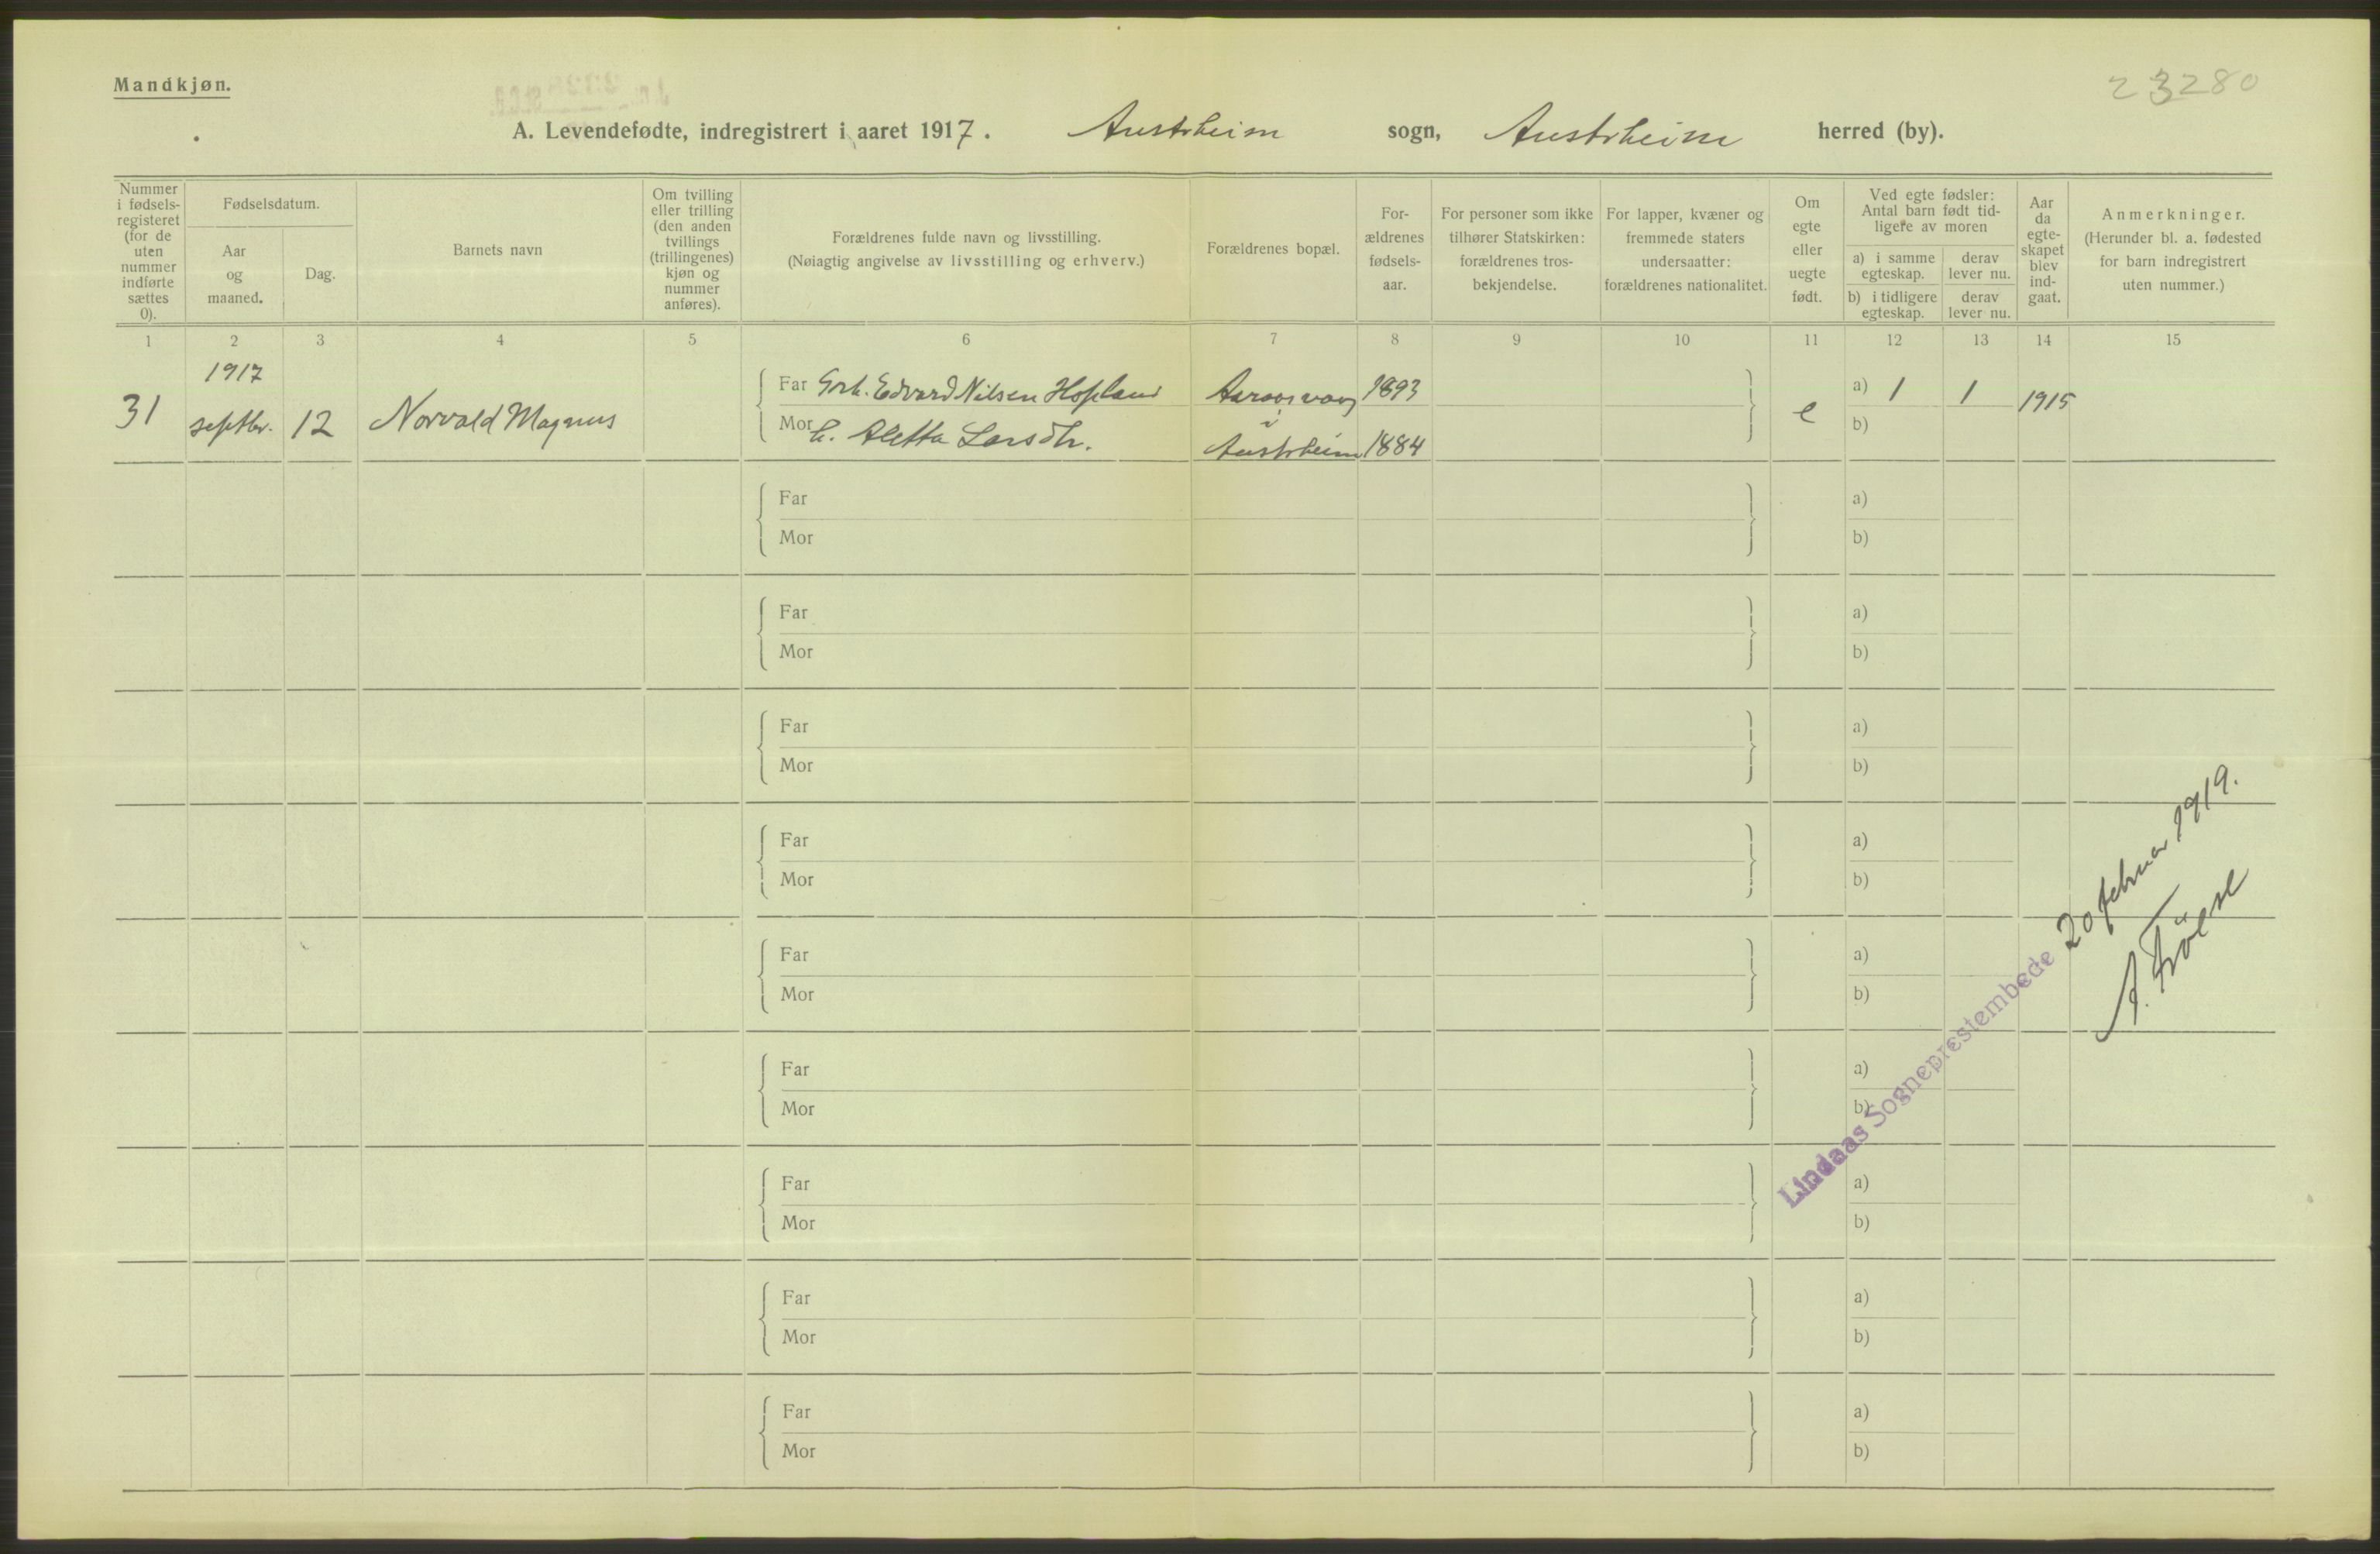 Mandkjøn.
23280
A. Levendefødte, indregistrert i aaret 1917. Austrheim sogn, Austrheim herred (by).
Nummer i fødsels-registeret (for de uten nummer indførte sættes 0).
Fødselsdatum.
Aar og maaned.
Dag.
Barnets navn
Om tvilling eller trilling (den anden tvillings (trillingenes) kjøn og nummer anføres).
Forældrenes fulde navn og livsstilling.
(Nøiagtig angivelse av livsstilling og erhverv.)
Forældrenes bopæl.
For-ældrenes fødsels-aar.
For personer som ikke tilhører Statskirken: forældrenes tros-bekjendelse.
For lapper, kvæner og fremmede staters undersaatter: forældrenes nationalitet.
Om egte eller uegte født.
Ved egte fødsler: Antal barn født tid-ligere av moren
a) i samme egteskap.
derav lever nu.
b) i tidligere egteskap.
derav lever nu.
Aar da egte-skapet blev ind-gaat.
Anmerkninger.
(Herunder bl. a. fødested for barn indregistrert uten nummer.)
1 2 3 4 5 6 7 8 9 10 11 12 13 14 15
1917
31 septbr. 12 Norvald Magnus
Far Edvard Nilsen Hopland 1893
Mor h. Aletta Larsdtr. i Austrheim 1884
e a) 1 1 1915
b)
Far a)
Mor b)
Far a)
Mor b)
Far a)
Mor b)
Far a)
Mor b)
Far a)
Mor b)
Far a)
Mor b)
Far a)
Mor b)
Far a)
Mor b)
Far a)
Mor b)
Lindaas Sogneprestembede 20 februar 1919.